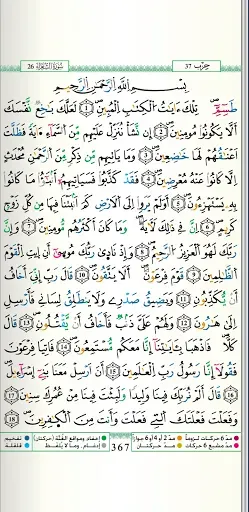 سُورَةُ الشُّعَرَاء 26
حِزْب 37
بِسْمِ اِللَّهِ اِلرَّحْمَٰنِ اِلرَّحِيمِ
طَسِٓمِّٓ تِلْكَ ءَايَٰتُ اُلْكِتَٰبِ اِلْمُبِينِ 1 لَعَلَّكَ بَٰخِعٞ نَّفْسَكَ
أَلَّا يَكُونُواْ مُومِنِينَ 2 إِن نَّشَأْ نُنَزِّلْ عَلَيْهِم مِّنَ اَلسَّمَآءِ ءَايَةٗ فَظَلَّتَ
اَعْنَٰقُهُمْ لَهَا خَٰضِعِينَ 3 وَمَا يَاتِيهِم مِّن ذِكْرٖ مِّنَ اَلرَّحْمَٰنِ مُحْدَثٍ
اِلَّا كَانُواْ عَنْهُ مُعْرِضِينَ 4 فَقَدْ كَذَّبُواْ فَسَيَاتِيهِمُۥٓ أَنۢبَٰٓؤُاْ مَا كَانُواْ
بِهِۦ يَسْتَهْزِءُونَ 5 أَوَلَمْ يَرَوِاْ اِلَى اَلَارْضِ كَمَ اَنۢبَتْنَا فِيهَا مِن كُلِّ زَوْجٖ
كَرِيمٍ 6 اِنَّ فِي ذَٰلِكَ لَأٓيَةٗ وَمَا كَانَ أَكْثَرُهُم مُّومِنِينَ 7 وَإِنَّ
رَبَّكَ لَهُوَ اَلْعَزِيزُ اُلرَّحِيمُ 8 وَإِذْ نَادَىٰ رَبُّكَ مُوسَىٰٓ أَنِ اِيتِ اِلْقَوْمَ
اَلظَّٰلِمِينَ 9 قَوْمَ فِرْعَوْنَ أَلَا يَتَّقُونَ 10 قَالَ رَبِّ إِنِّيَ أَخَافُ
أَنْ يُّكَذِّبُونِ 11 وَيَضِيقُ صَدْرِي وَلَا يَنطَلِقُ لِسَانِي فَأَرْسِلِ
اِلَىٰ هَٰرُونَ 12 وَلَهُمْ عَلَيَّ ذَنۢبٞ فَأَخَافُ أَنْ يَّقْتُلُونِ 13 قَالَ
كَلَّا فَاذْهَبَا بِـَٔايَٰتِنَآ إِنَّا مَعَكُم مُّسْتَمِعُونَ 14 فَاتِيَا فِرْعَوْنَ
فَقُولَآ إِنَّا رَسُولُ رَبِّ اِلْعَٰلَمِينَ 15 أَنَ اَرْسِلْ مَعَنَا بَنِيٓ إِسْرَآءِيلَ
16 قَالَ أَلَمْ نُرَبِّكَ فِينَا وَلِيداٗ وَلَبِثْتَ فِينَا مِنْ عُمُرِكَ سِنِينَ 17
وَفَعَلْتَ فَعْلَتَكَ اَلتِي فَعَلْتَ وَأَنتَ مِنَ اَلْكَٰفِرِينَ 18
367